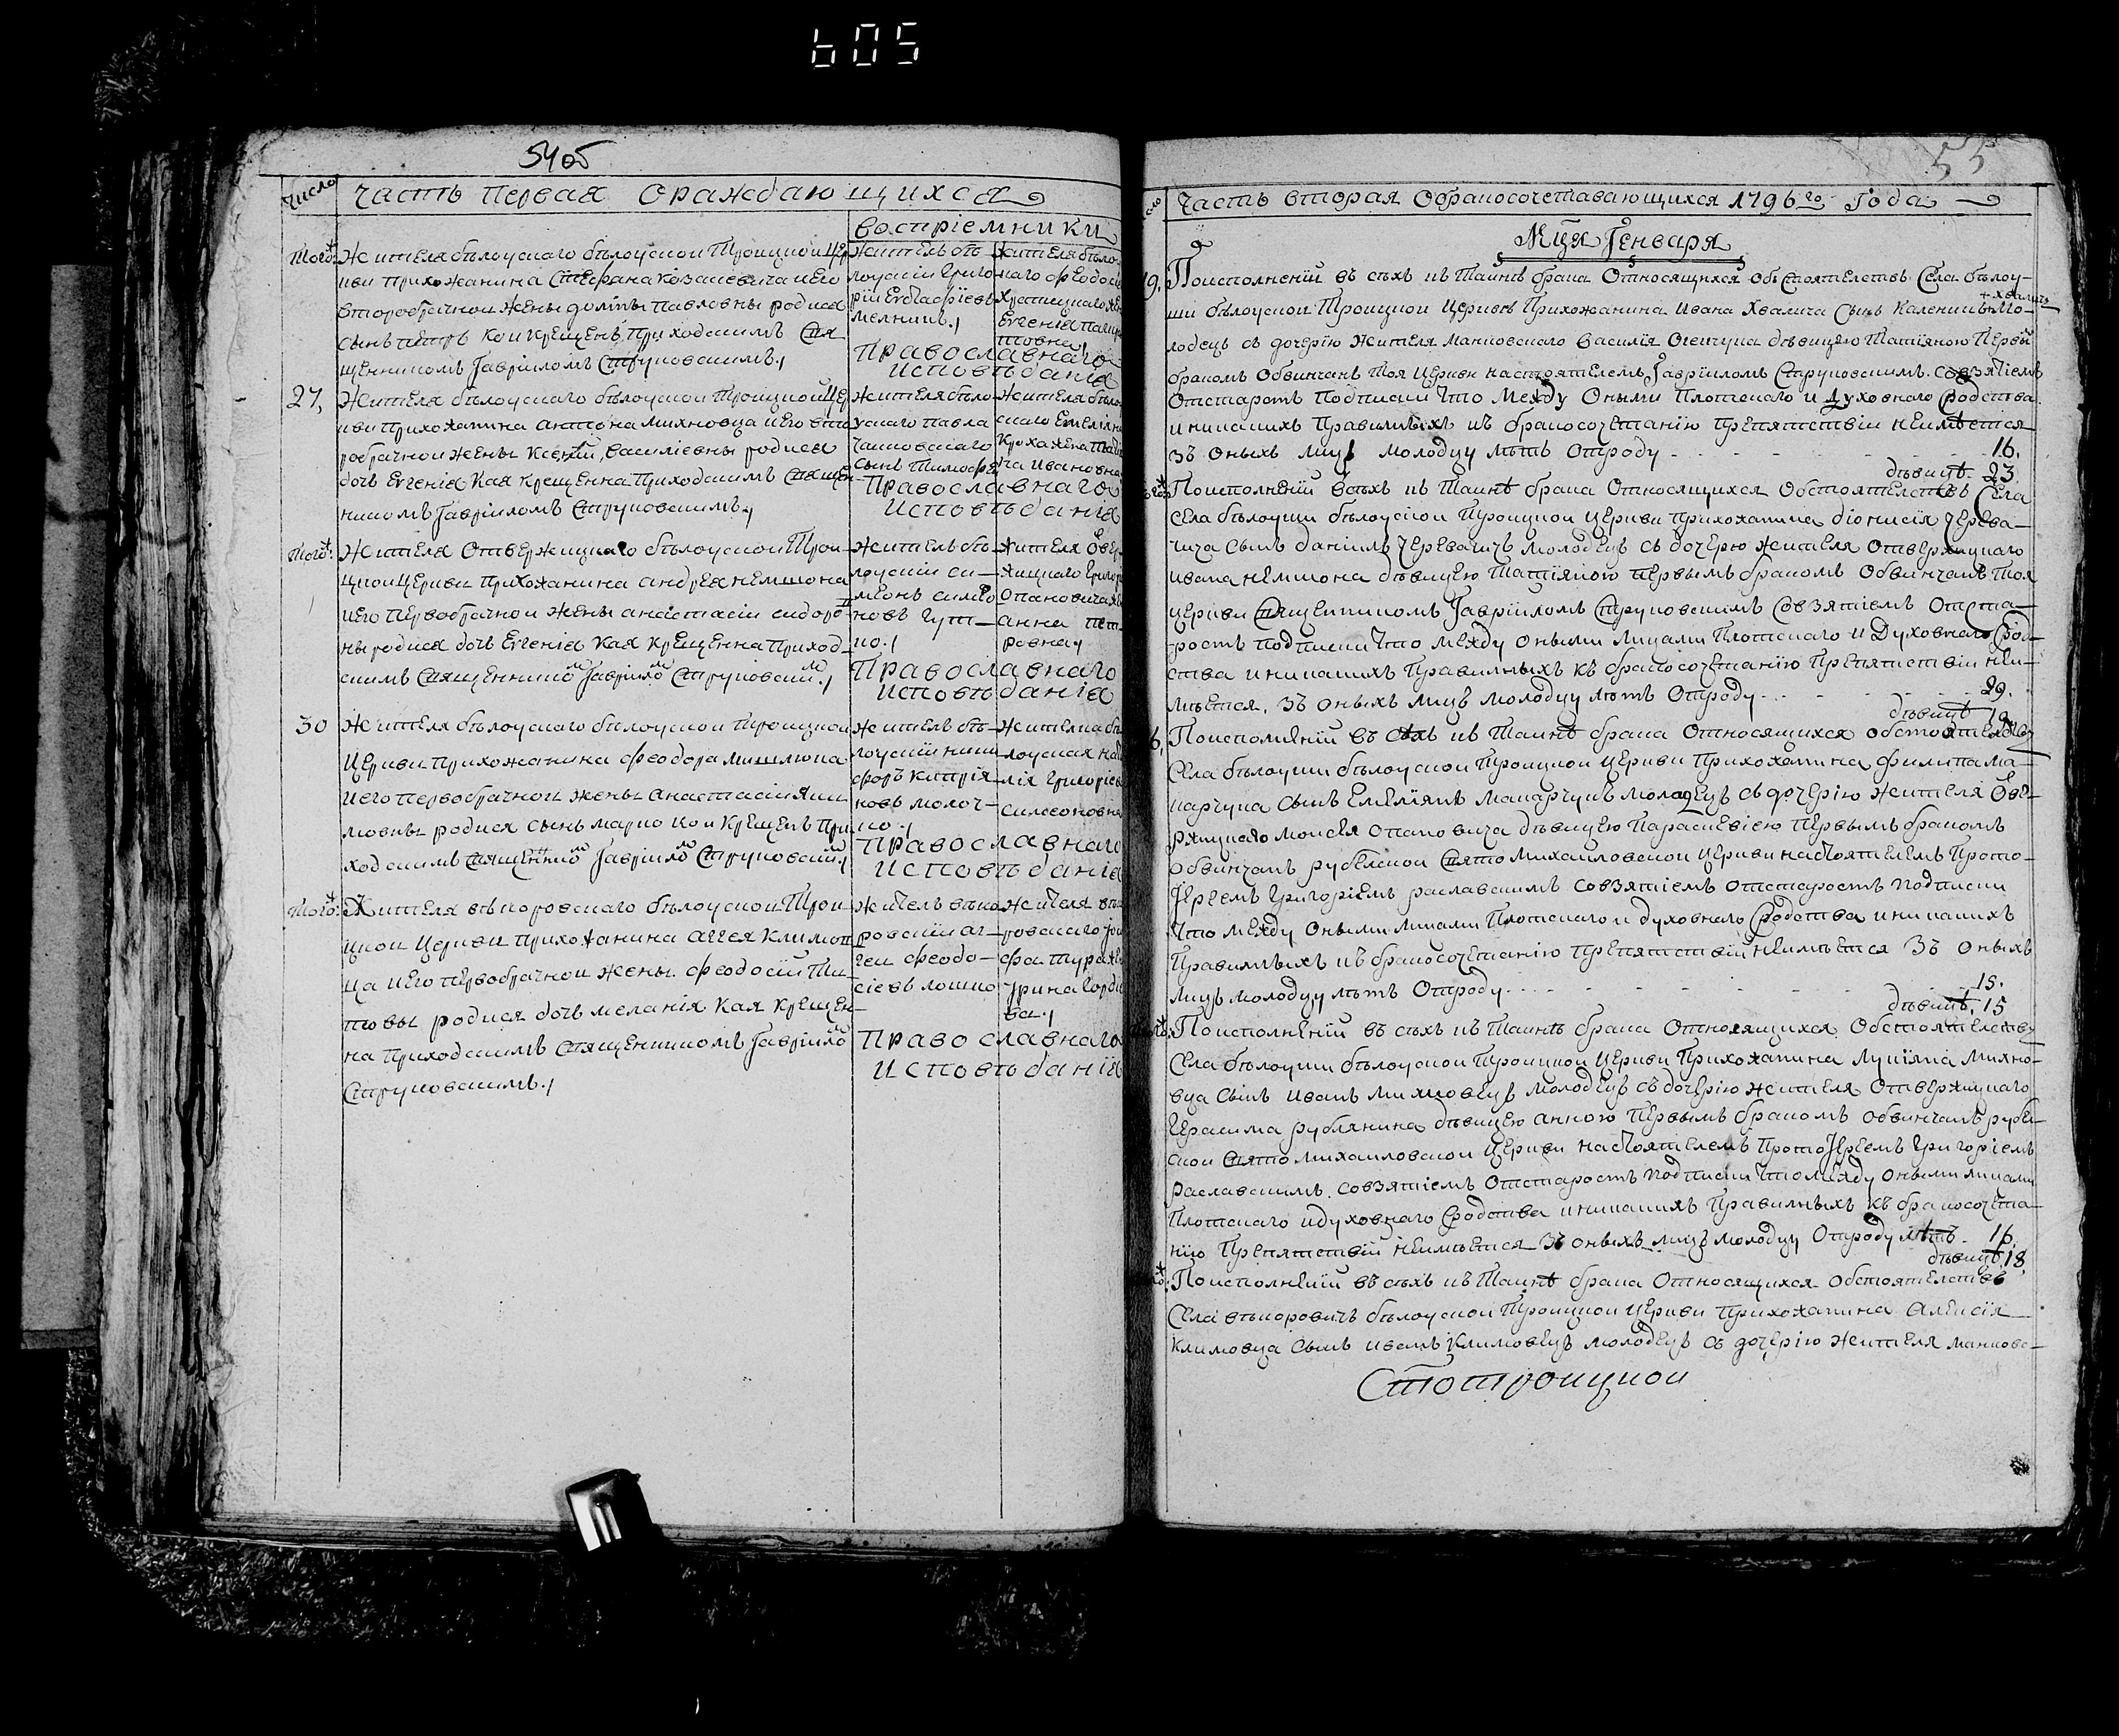 605
54об
Число
Часть Первая О раждающихся
восприемники
тогож
Жителя белоускаго белоускои Троицкои Цер
кви прихожанина Стефана Козакевича и его
второбрачнои жены Павловны родися
сынъ петръ кои крещенъ Приходскимъ Свя
щенникомъ Гавріиломъ Струковскимъ
Житель бе
лоускіи Григо
рій Евстафіевъ
мелникъ
Жителя бело
Евгенія
Православнаго
исповѣданія
27,
Жителя белоускаго белоускои Троицкои Цер
кви прихожанина антона михновца и его вто
робрачнои жены Ксеніи, василіевны родися
дочь Евгенія Кая Крещенна Приходскимъ Священ
никомъ Гавріиломъ Струковскимъ
Жителя бело
ускаго павла
сынъ Тимофей
Жителя бело
Ивановна
Православнаго
исповѣданія
тогож
Жителя Отвержицкаго белоускои Трои
цкои Церкви прихожанина андрея немшона
и его первобрачнои жены анастасіи сидоро
ны родися дочь Евгенія Кая Крещенна Приход
скимъ Священникомъ Гавріиломъ Струковским
Житель бе
лоускіи си
меонъ симео
новъ гут
ко
Жителя Овер
жицкаго григор
Опановича
анна пет
ровна
Православнаго
исповѣданія
30
Жителя белоускаго белоускои Троицкои
Церкви прихожанина феодора мишлюка
и его первобрачнои жены анастасіи яки
мовны родися сынъ марко кои крещенъ При
ходскимъ Священником Гавріилом Струковским
Житель бе
лоускіи ники
форъ Кипріа
новъ молоч
ко
Жителка бе
лоуская ната
лія григоріев
Симеоновна
Православнаго
исповѣданія
тогож
Жителя вѣкоровскаго белоускои Трои
цкои Церкви прихожанина аггея Климов
ца и его первобрачнои жены феодосіи Ти
товы родися дочь меланія Кая Крещен
на Приходскимъ Священникомъ Гавріилом
Струковскимъ
Житель веко
ровскіи аг
геи феодо
сіевъ
Жителя век
ровскаго
Православнаго
исповѣданія
55
Часть вторая О бракосочетавающихся 1796го Года
Мца Генваря
9.
По исполненіи всѣхъ къ Таинѣ брака Относящихся Обстоятелствъ Села белоу-
ши белоускои Троицкои Церквѣ Прихожанина Ивана Хвалича Сынъ Каленикъ мо-
лодецъ съ дочерію Жителя манковскаго василія девицею Татіяною Первы
бракомъ Обвинчанъ Тоя Церкви настоятелемъ Гавріиломъ Струковскимъ. Со взятіемъ
От старостъ Подписки Что Между Оными Плотскаго и Духовнаго Сродства
и никакихъ Правилныхъ къ бракосочетанію препятствіи неимѣется
Зъ Оныхъ Лицъ молодцу лѣтъ Отроду 16.
дѣвицѣ. 23
По исполненіи всѣхъ къ Таинѣ брака Относящихся Обстоятелствъ Села
Села белоуши белоускои Троицкои Церкви прихожанина діонисія Черева-
чича Сынъ даніилъ Черевачичъ молодецъ съ дочерію Жителя Отвержицкаго
ивана немшона дѣвицею Татіяною первымъ бракомъ Обвинчанъ Тоя
Церкви Священникомъ Гавріиломъ Струковскимъ Со взятіемъ От ста-
ростъ подписки Что между оными лицами Плотскаго и Духовнаго Срод-
ства и никакихъ Правилныхъ къ бракосочетанію Препятствіи неи-
мѣется. Зъ Оныхъ лицъ молодцу лѣтъ Отроду 29.
дѣвицѣ 19
6,
По исполненіи всѣхъ къ Таинѣ брака Относящихся обстоятелствъ
Села белоуши белоускои Троицкои Церкви Прихожанина филипа ма-
карчука сынъ Емеліянъ макарчукъ молодецъ съ дочерію Жителя Ове-
ржицкаго моисея Опановича дѣвицею Параскевіею Первымъ бракомъ
Обвинчанъ рубелскои Свято Михаиловскои Церкви настоятелемъ Прото-
Іереемъ Григоріемъ раславскимъ Со взятіемъ От старостъ подписки
Что между Оными лицами Плотскаго и духовнаго Сродства и никакихъ
Правилныхъ къ бракосочетанію препятствіи неимѣется Зъ Оныхъ
лицъ молодцу лѣтъ Отроду 15.
дѣвицѣ. 15
По исполненіи всѣхъ къ Таинѣ брака Относящихся Обстоятелствъ
Села белоуши белоускои Троицкои Церкви Прихожанина Лукіяна Михно-
вца Сынъ иванъ михновецъ молодецъ съ дочерію жителя Отвержицкаго
Герасима рублянина дѣвицею анною Первымъ бракомъ Обвинчанъ рубел-
скои Свято михаиловскои Церкви настоятелемъ ПротоІереемъ Григоріемъ
раславскимъ. Со взятіемъ От старостъ Подписки Что между оными лицами
Плотскаго и духовнаго Сродства и никакихъ Правилныхъ къ бракосочета-
нію Препятствіи неимѣется Зъ оныхъ лицъ молодцу Отроду лѣтъ. 16.
дѣвицѣ 18
По исполненіи всѣхъ къ Таинѣ брака Относящихся Обстоятелствъ
Села вѣкоровичъ белоускои Троицкои Церкви прихожанина Алексія
Климовца Сынъ иванъ Климовецъ молодецъ съ дочерію жителя манковс-
Стотроицкои